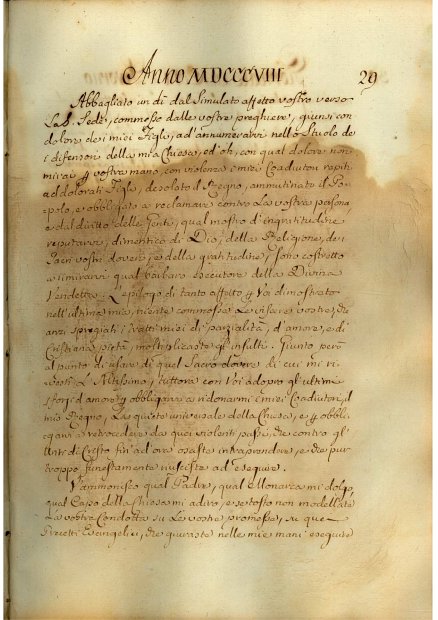 Anno MDCCCVIII 29
Abbagliato un dì dal Simulato affetto vostro verso
La S. Sede, commosso dalle vostre preghiere, giunsi con
dolore dei miei Figli, ad annumerarvi nello Stuolo de
i difensori della mia Chiesa, ed oh, con qual dolore non
mirai p vostra mano, con violenza i miei Coadiutori rapiti
ad dolorati Figli, desolato il Regno, ammutinato il Po-
polo, e obbligato a reclamare contro La vostra persona
e dal diritto delle Genti, qual mostro d'ingratitudine
reputarvi, dimentico di Dio, della Religione, de i
vostri doveri, e della gratitudine, sono costretto
a rimirarvi qual barbaro esecutore della Divina
Vendetta. L'epilogo di tanto affetto p Voi dimostrato
nell'ultima mia, niente commosse Le viscere vostre, di
anzi spregiati i tratti miei di parzialità, d'amore, e di
Cristiana pietà, moltiplicaste gl'insulti. Giunto però
al punto di usare di quel Sacro dovere di cui mi ri-
vestì L'Altissimo, tuttora con Voi adopro gl'ultimi
sforzi d'amore p obbligarvi a ridonarmi i miei Coadiutori, il
mio Regno, La quiete universale della Chiesa, e p obbli-
garvi a retrocedere da quei violenti passi, che contro gl'
Unti di Cristo fin ad ora osaste intraprendere, e che pur
troppo funestamente riusciste ad eseguire.
V'ammonisco qual Padre, qual Monarca mi dolgo,
qual Capo della Chiesa mi adiro, e se tosto non modellate
La vostra Condotta su Le vostre promesse, su que
Precetti Evangelici, che giuraste nelle mie mani eseguire